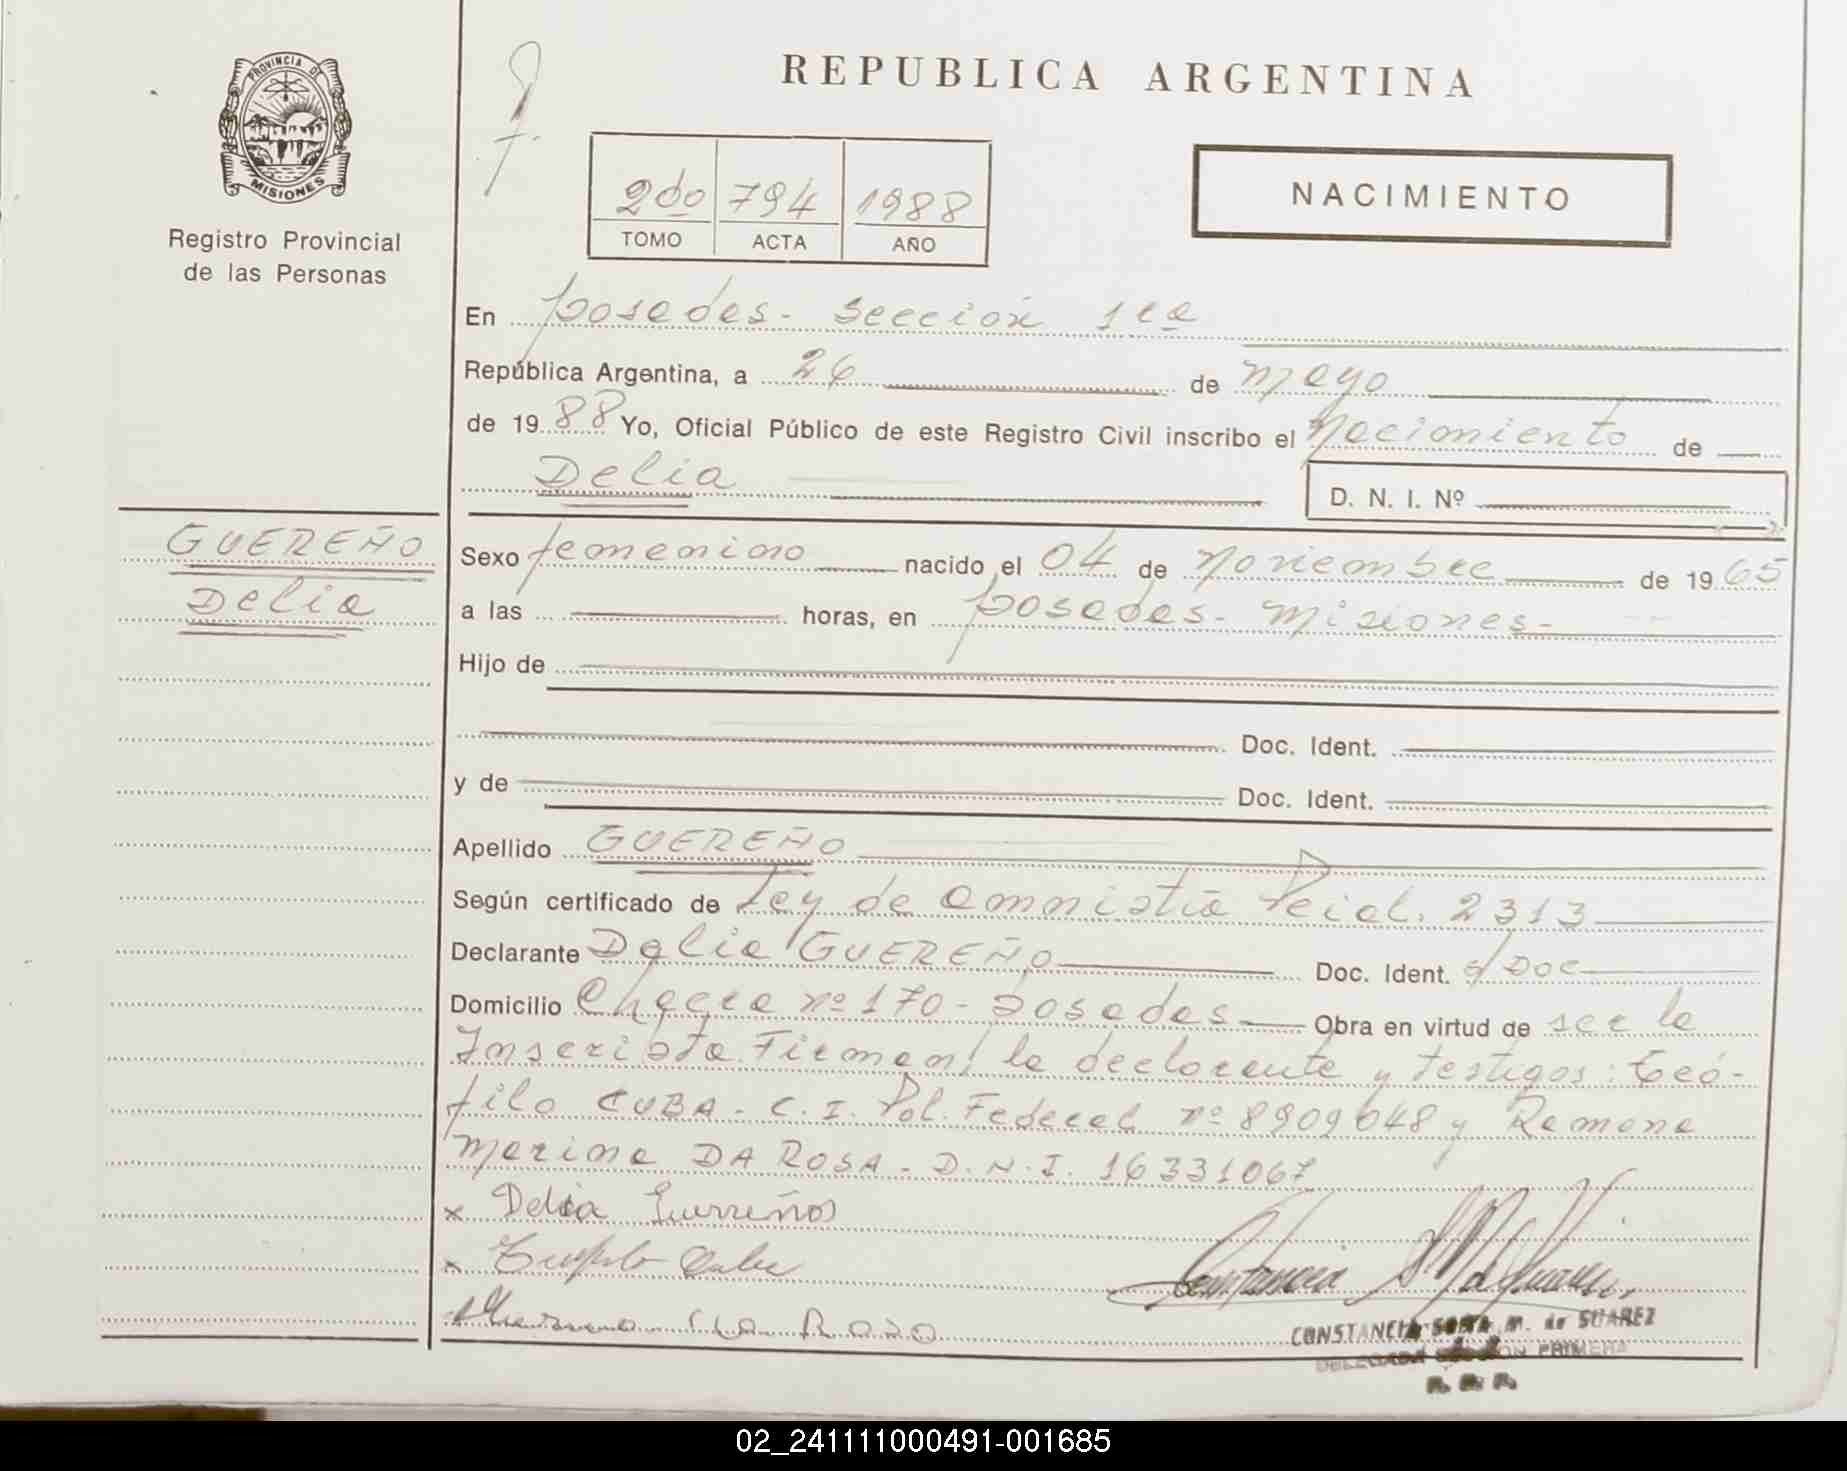 PROVINCIA DE
MISIONES
Registro Provincial
de las Personas
REPUBLICA ARGENTINA
2do 794 1988
TOMO ACTA AÑO
NACIMIENTO
En Posadas - Sección 1ra
República Argentina, a 26 de Mayo
de 1988 Yo, Oficial Público de este Registro Civil inscribo el Nacimiento de
Delia D. N. I. Nº
GUEREÑO
Delia
Sexo femenino nacido el 04 de Noviembre de 1965
a las horas, en Posadas - Misiones -
Hijo de
Doc. Ident.
y de Doc. Ident.
Apellido GUEREÑO
Según certificado de Ley de Amnistía Pcial. 2313
Declarante Delia GUEREÑO Doc. Ident. s/Doc
Domicilio nº 170 - Posadas Obra en virtud de ser la
Inscripta. Firman la declarante y testigos: Teó-
filo CUBA - C. I. Pol. Federal nº 8909648 y Ramona
Marina DA ROSA - D.N.I. 16331067
x Delia Guereño
x Cuba
Da Rosa
CONSTANCIA M. de SUAREZ
DELEGADA SECCION PRIMERA
R. P. P.
02_241111000491-001685